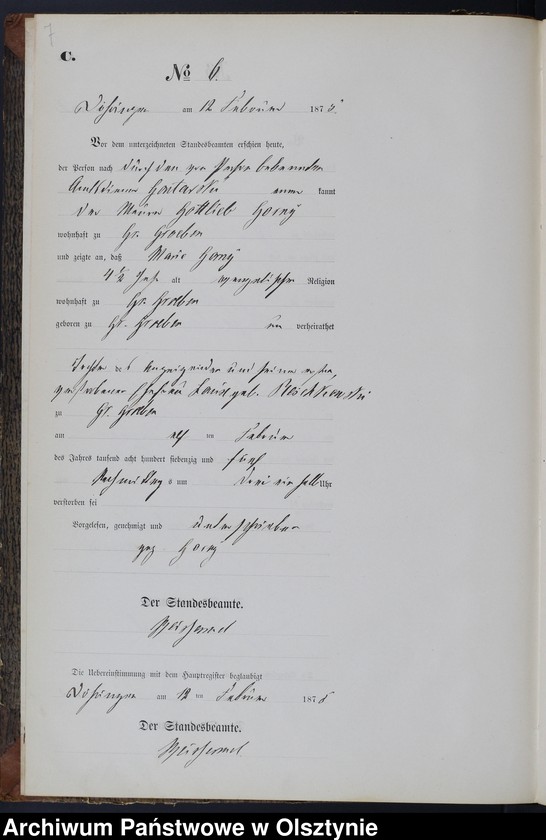 7
C.
No 6.
Döhringen am 12 Februar 1875.
Vor dem unterzeichneten Standesbeamten erschien heute,
der Person nach durch den von Person bekannten
Amtsdiener anerkannt
der Maurer Gottlieb Gorny
wohnhaft zu Gr. Groeben
und zeigte an, daß Marie Gorny
4 1/2 Jahr alt evangelischer Religion
wohnhaft zu Gr. Groeben
geboren zu Gr. Groeben un verheirathet
Tochter des Anzeigenden und seiner ersten,
verstorbenen Ehefrau geb.
zu Gr. Groeben
am elf ten Februar
des Jahres tausend acht hundert siebenzig und fünf
Nachmittags um drei ein halb Uhr
verstorben sei
Vorgelesen, genehmigt und unterschrieben
gez. Gorny
Der Standesbeamte.
Die Uebereinstimmung mit dem Hauptregister beglaubigt
Döhringen am 12 ten Februar 1875
Der Standesbeamte.
Archiwum Państwowe w Olsztynie